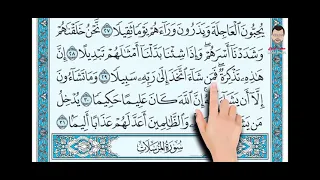 يُحِبُّونَ ٱلْعَاجِلَةَ وَيَذَرُونَ وَرَآءَهُمْ يَوْمًا ثَقِيلًا ٢٧ نَّحْنُ خَلَقْنَٰهُمْ
وَشَدَدْنَآ أَسْرَهُمْ ۖ وَإِذَا شِئْنَا بَدَّلْنَآ أَمْثَٰلَهُمْ تَبْدِيلًا ٢٨ إِنَّ
هَٰذِهِۦ تَذْكِرَةٌ ۖ فَمَن شَآءَ ٱتَّخَذَ إِلَىٰ رَبِّهِۦ سَبِيلًا ٢٩ وَمَا تَشَآءُونَ
إِلَّآ أَن يَشَآءَ إِنَّ ٱللَّهَ كَانَ عَلِيمًا حَكِيمًا ٣٠ يُدْخِلُ
مَن يَشَآءُ وَٱلظَّٰلِمِينَ أَعَدَّ لَهُمْ عَذَابًا أَلِيمًۢا ٣١
سُورَةُ المُرْسَلَاتِ